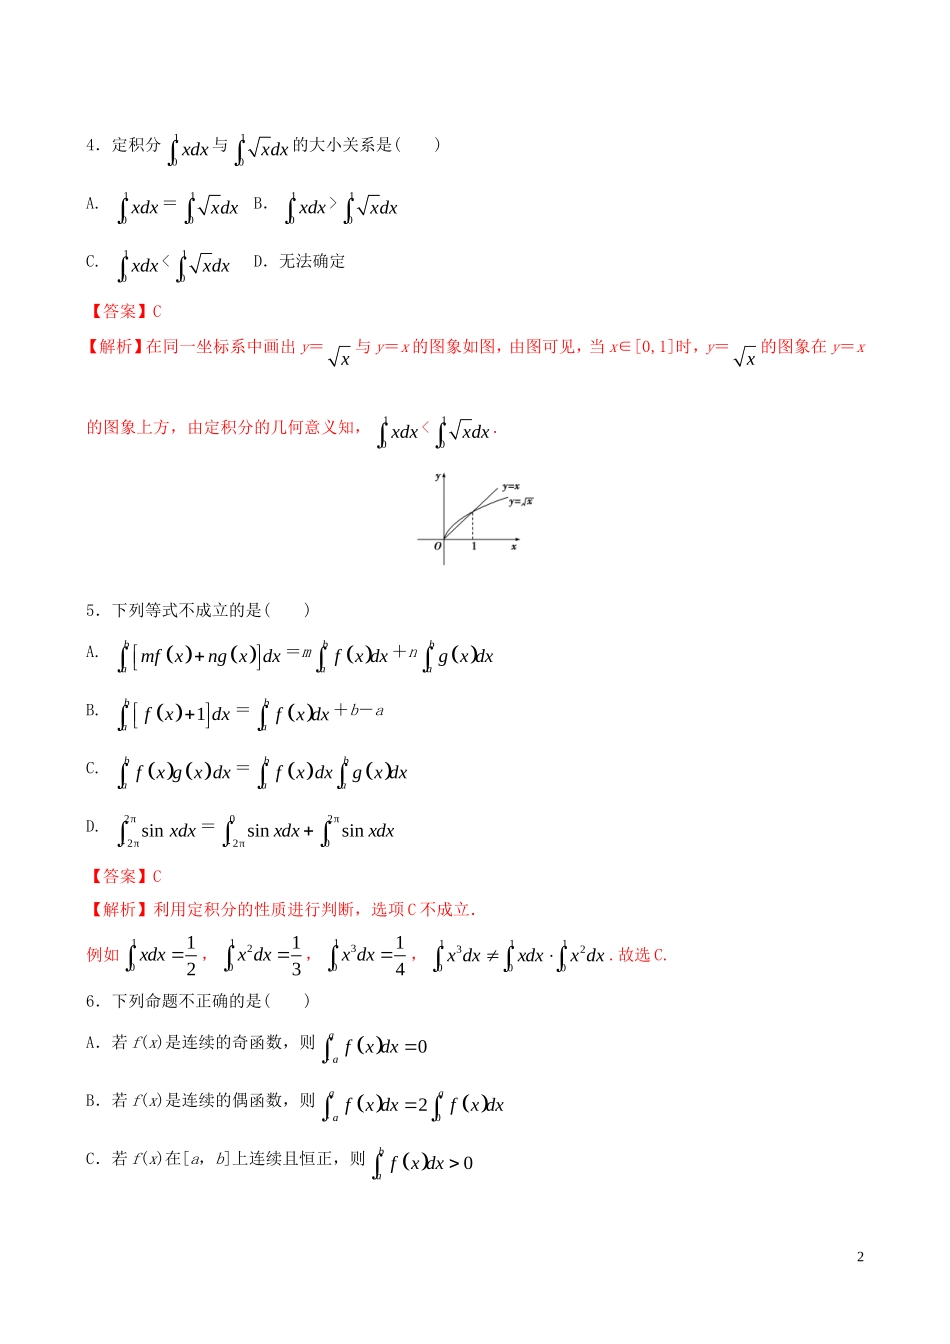 4．定积分∫₀¹xdx与∫₀¹√xdx的大小关系是(　　)
A. ∫₀¹xdx＝∫₀¹√xdx B．∫₀¹xdx>∫₀¹√xdx
C. ∫₀¹xdx<∫₀¹√xdx D．无法确定
【答案】C
【解析】在同一坐标系中画出 y＝√x 与 y＝x 的图象如图，由图可见，当 x∈[0,1]时，y＝√x 的图象在 y＝x
的图象上方，由定积分的几何意义知，∫₀¹xdx<∫₀¹√xdx．
y
y=x
y=√x
O 1 x
5．下列等式不成立的是(　　)
A. ∫ₐᵇ[mf(x)+ng(x)]dx＝m∫ₐᵇf(x)dx＋n∫ₐᵇg(x)dx
B. ∫ₐᵇ[f(x)+1]dx＝∫ₐᵇf(x)dx＋b－a
C. ∫ₐᵇf(x)g(x)dx＝∫ₐᵇf(x)dx∫ₐᵇg(x)dx
D. ∫₋₂π^2π sin xdx＝∫₋₂π^0 sin xdx+∫₀^2π sin xdx
【答案】C
【解析】利用定积分的性质进行判断，选项 C 不成立．
例如∫₀¹xdx=1/2，∫₀¹x²dx=1/3，∫₀¹x³dx=1/4，∫₀¹x³dx≠∫₀¹xdx·∫₀¹x²dx．故选 C.
6．下列命题不正确的是(　　)
A．若 f(x)是连续的奇函数，则∫₋ₐᵃf(x)dx=0
B．若 f(x)是连续的偶函数，则∫₋ₐᵃf(x)dx=2∫₀ᵃf(x)dx
C．若 f(x)在[a，b]上连续且恒正，则∫ₐᵇf(x)dx>0
2